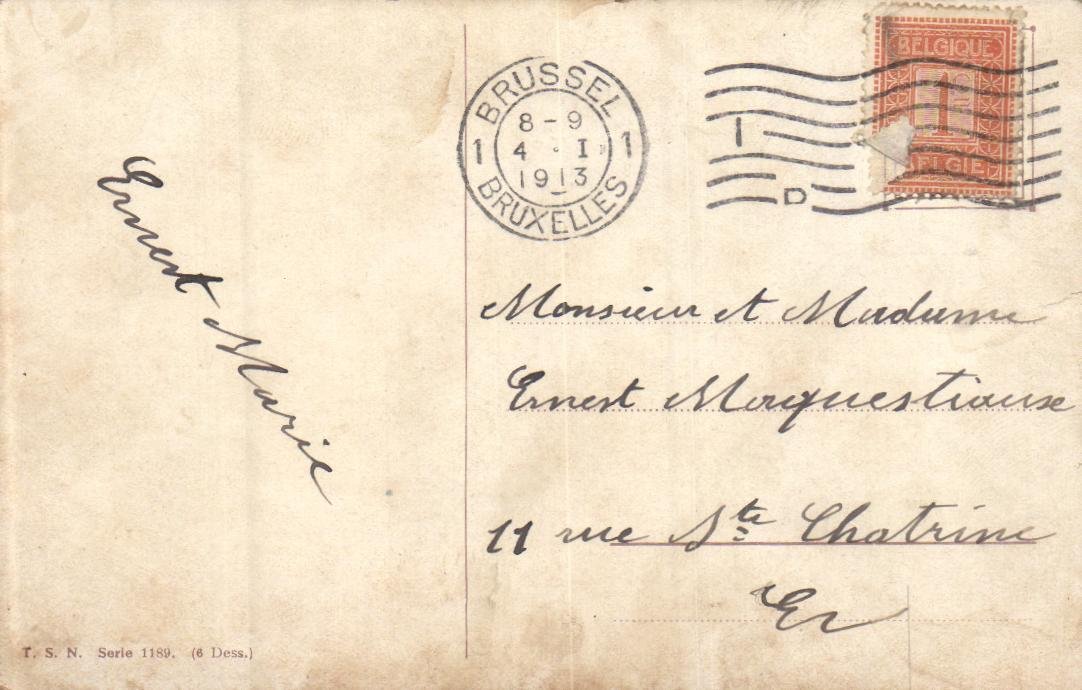 Ernest Marie
T. S. N. Serie 1189. (6 Dess.)
BRUSSEL
1 8-9 1
4 I
1913
BRUXELLES
BELGIQUE
1c
BELGIË
Monsieur et Madame
Ernest Moquestiause
11 rue Ste Chatrine